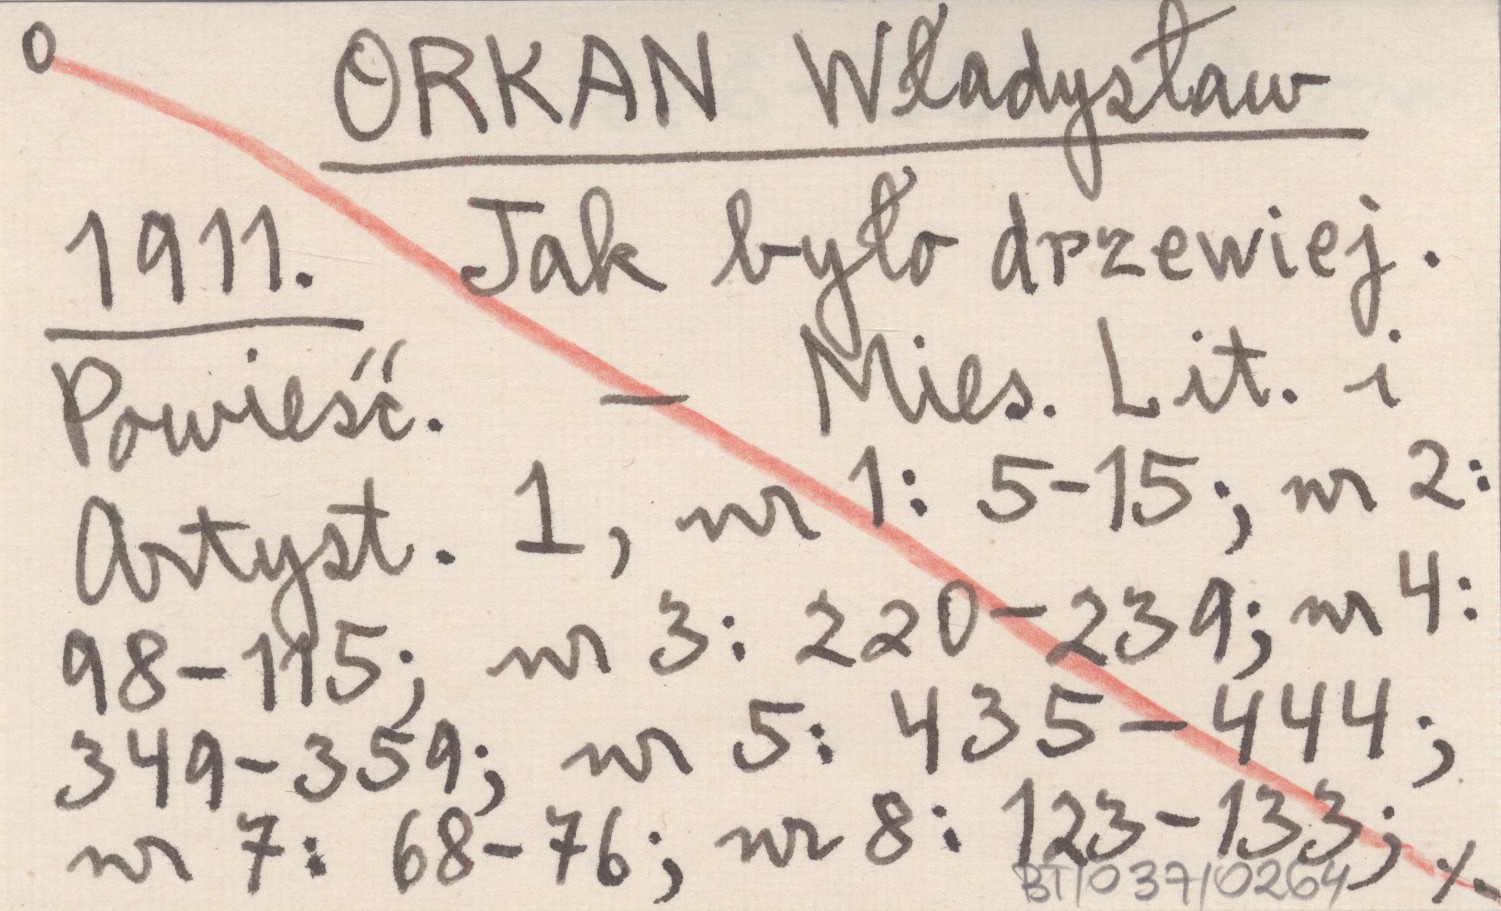 O
ORKAN Władysław
1911. Jak było drzewiej.
Powieść. — Mies. Lit. i
Artyst. 1, nr 1: 5-15; nr 2:
98-115; nr 3: 220-239; nr 4:
349-359; nr 5: 435-444;
nr 7: 68-76; nr 8: 123-133; ./.
BT/037/0264